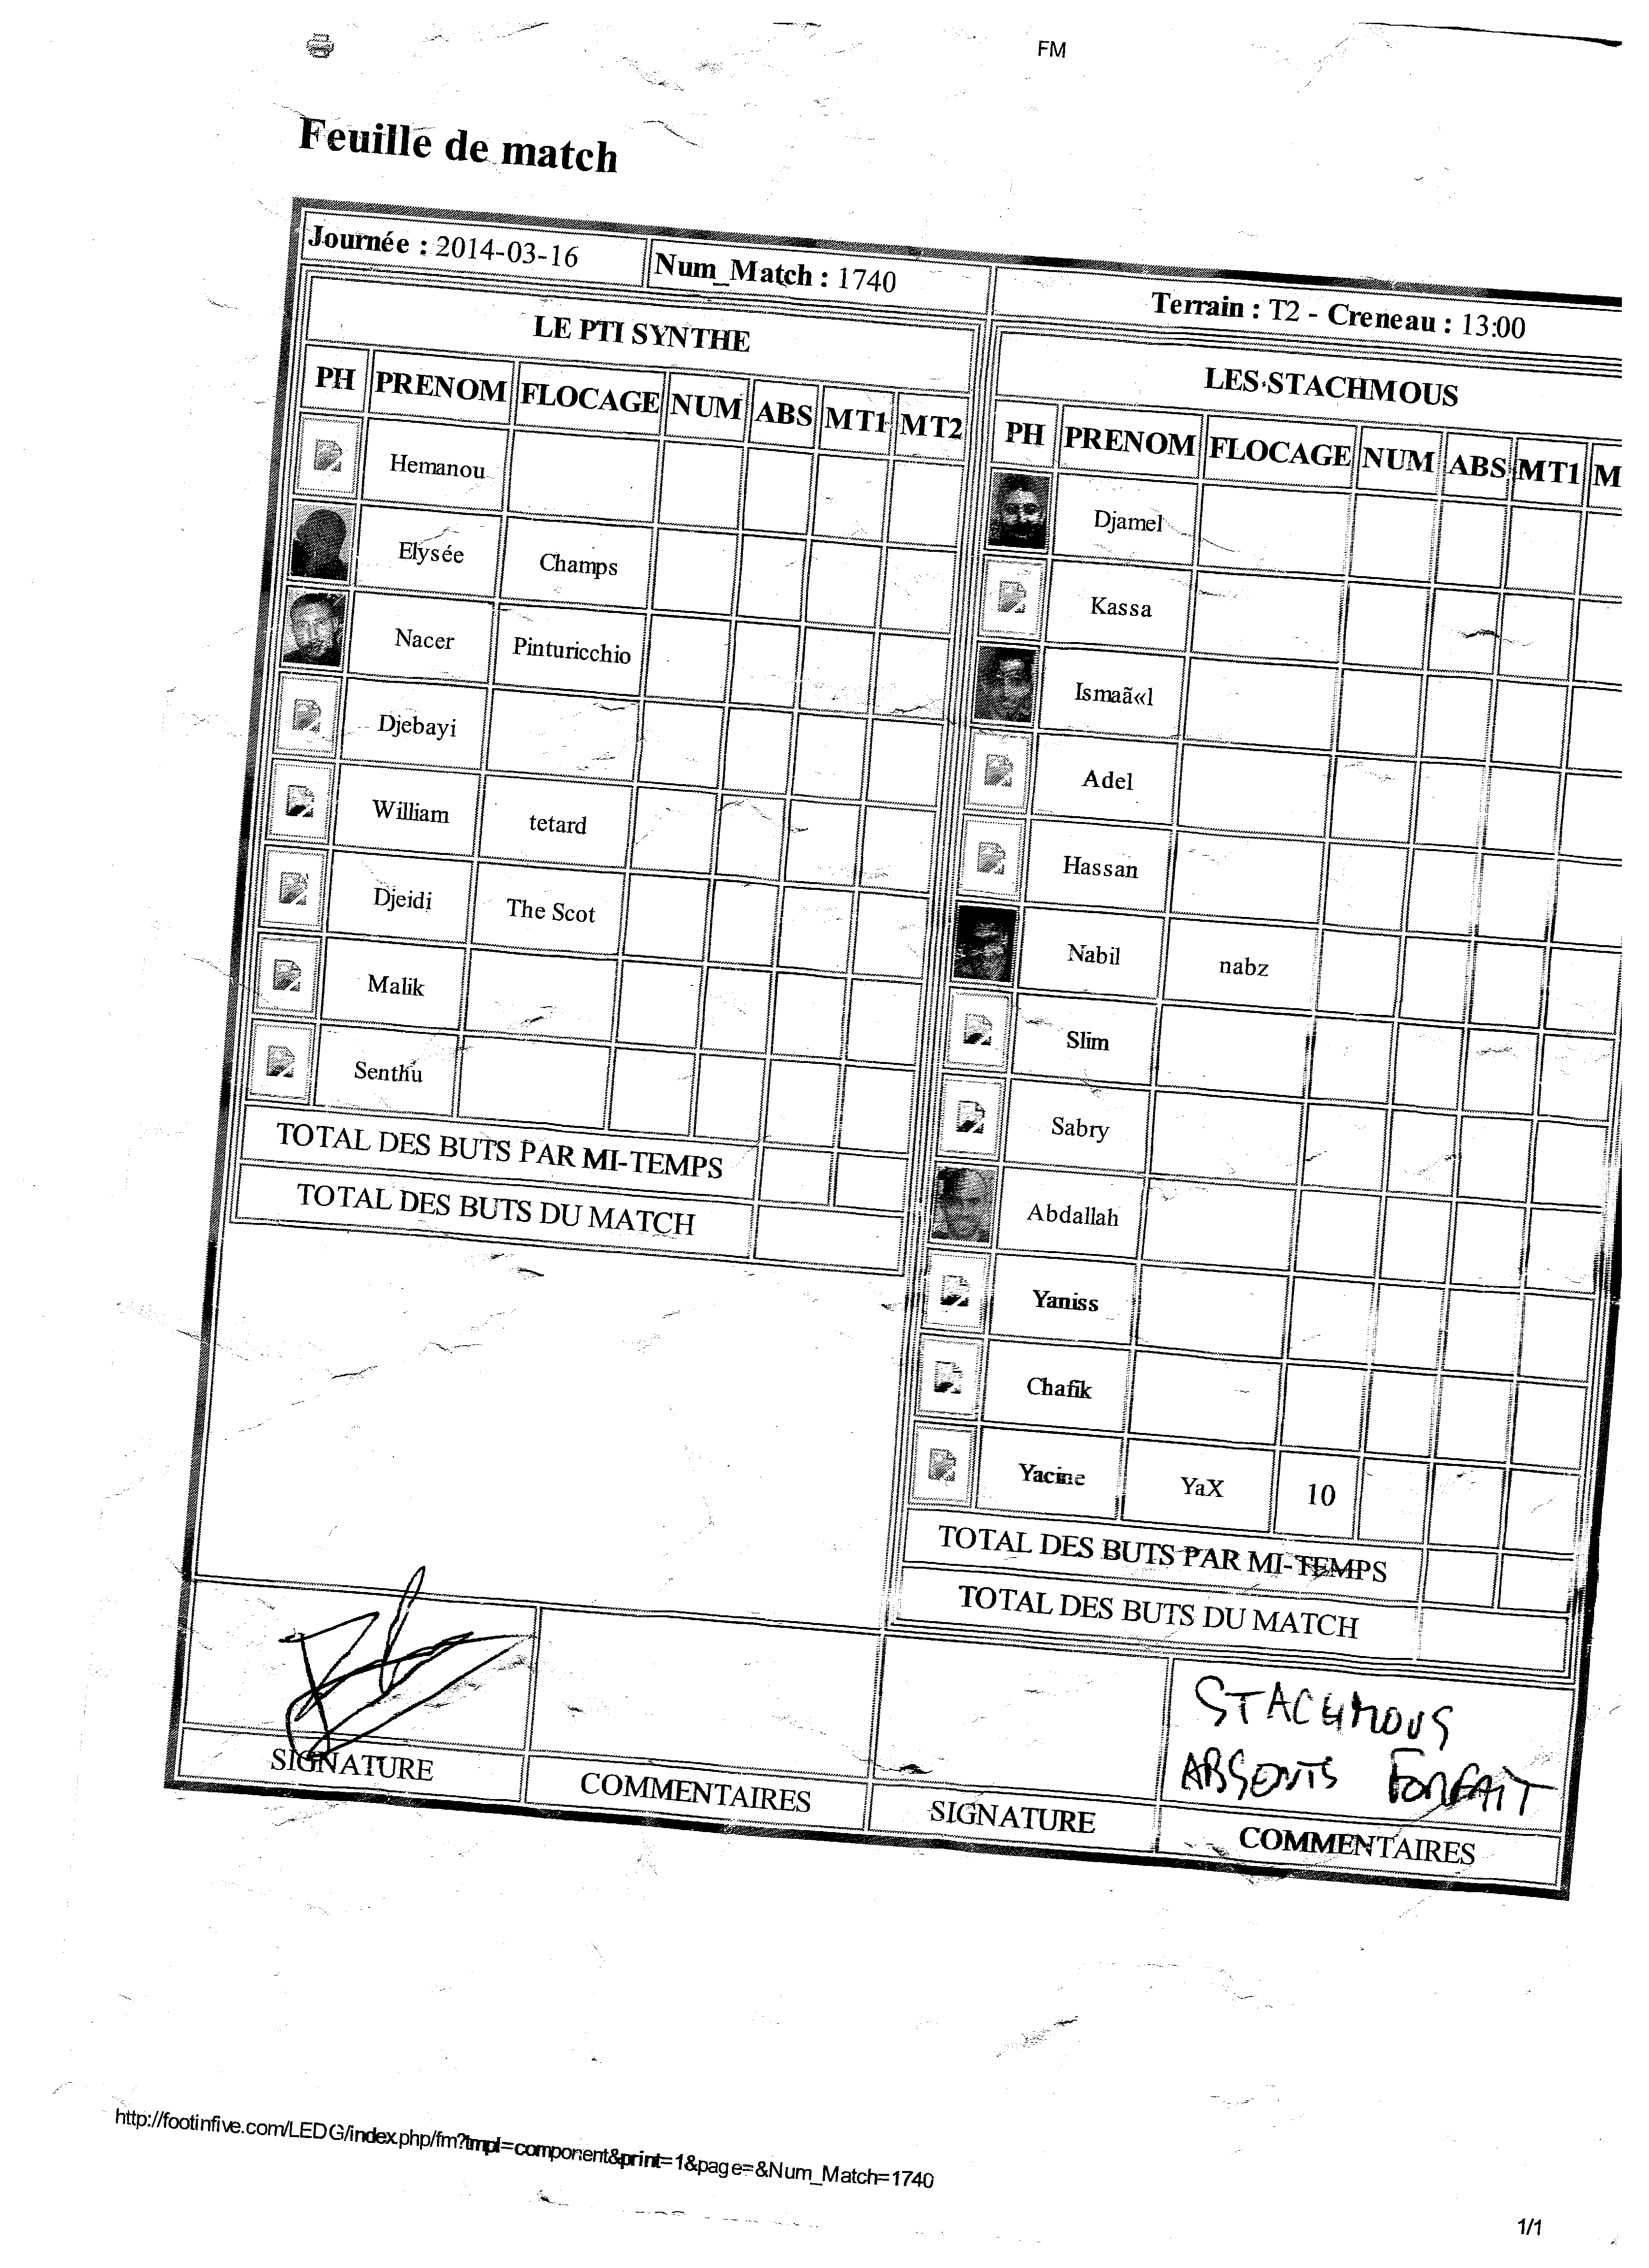 FM
Feuille de match
Journée : 2014-03-16 Num_Match : 1740 Terrain : T2 - Creneau : 13:00
LE PTI SYNTHE
PH PRENOM FLOCAGE NUM ABS MT1 MT2
Hemanou
Elysée Champs
Nacer Pinturicchio
Djebayi
William tetard
Djeidi The Scot
Malik
Senthu
TOTAL DES BUTS PAR MI-TEMPS
TOTAL DES BUTS DU MATCH
LES STACHMOUS
PH PRENOM FLOCAGE NUM ABS MT1 M
Djamel
Kassa
Ismaã«l
Adel
Hassan
Nabil nabz
Slim
Sabry
Abdallah
Yaniss
Chafik
Yacine YaX 10
TOTAL DES BUTS PAR MI-TEMPS
TOTAL DES BUTS DU MATCH
STACHMOUS
ABSENTS FORFAIT
SIGNATURE COMMENTAIRES SIGNATURE COMMENTAIRES
http://footinfive.com/LEDG/index.php/fm?tmpl=component&print=1&page=&Num_Match=1740
1/1